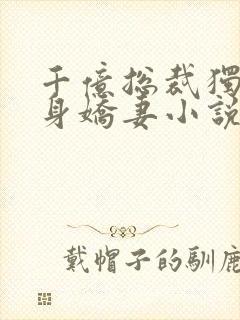 千億總裁獨
身嬌妻小說
戴帽子的馴鹿